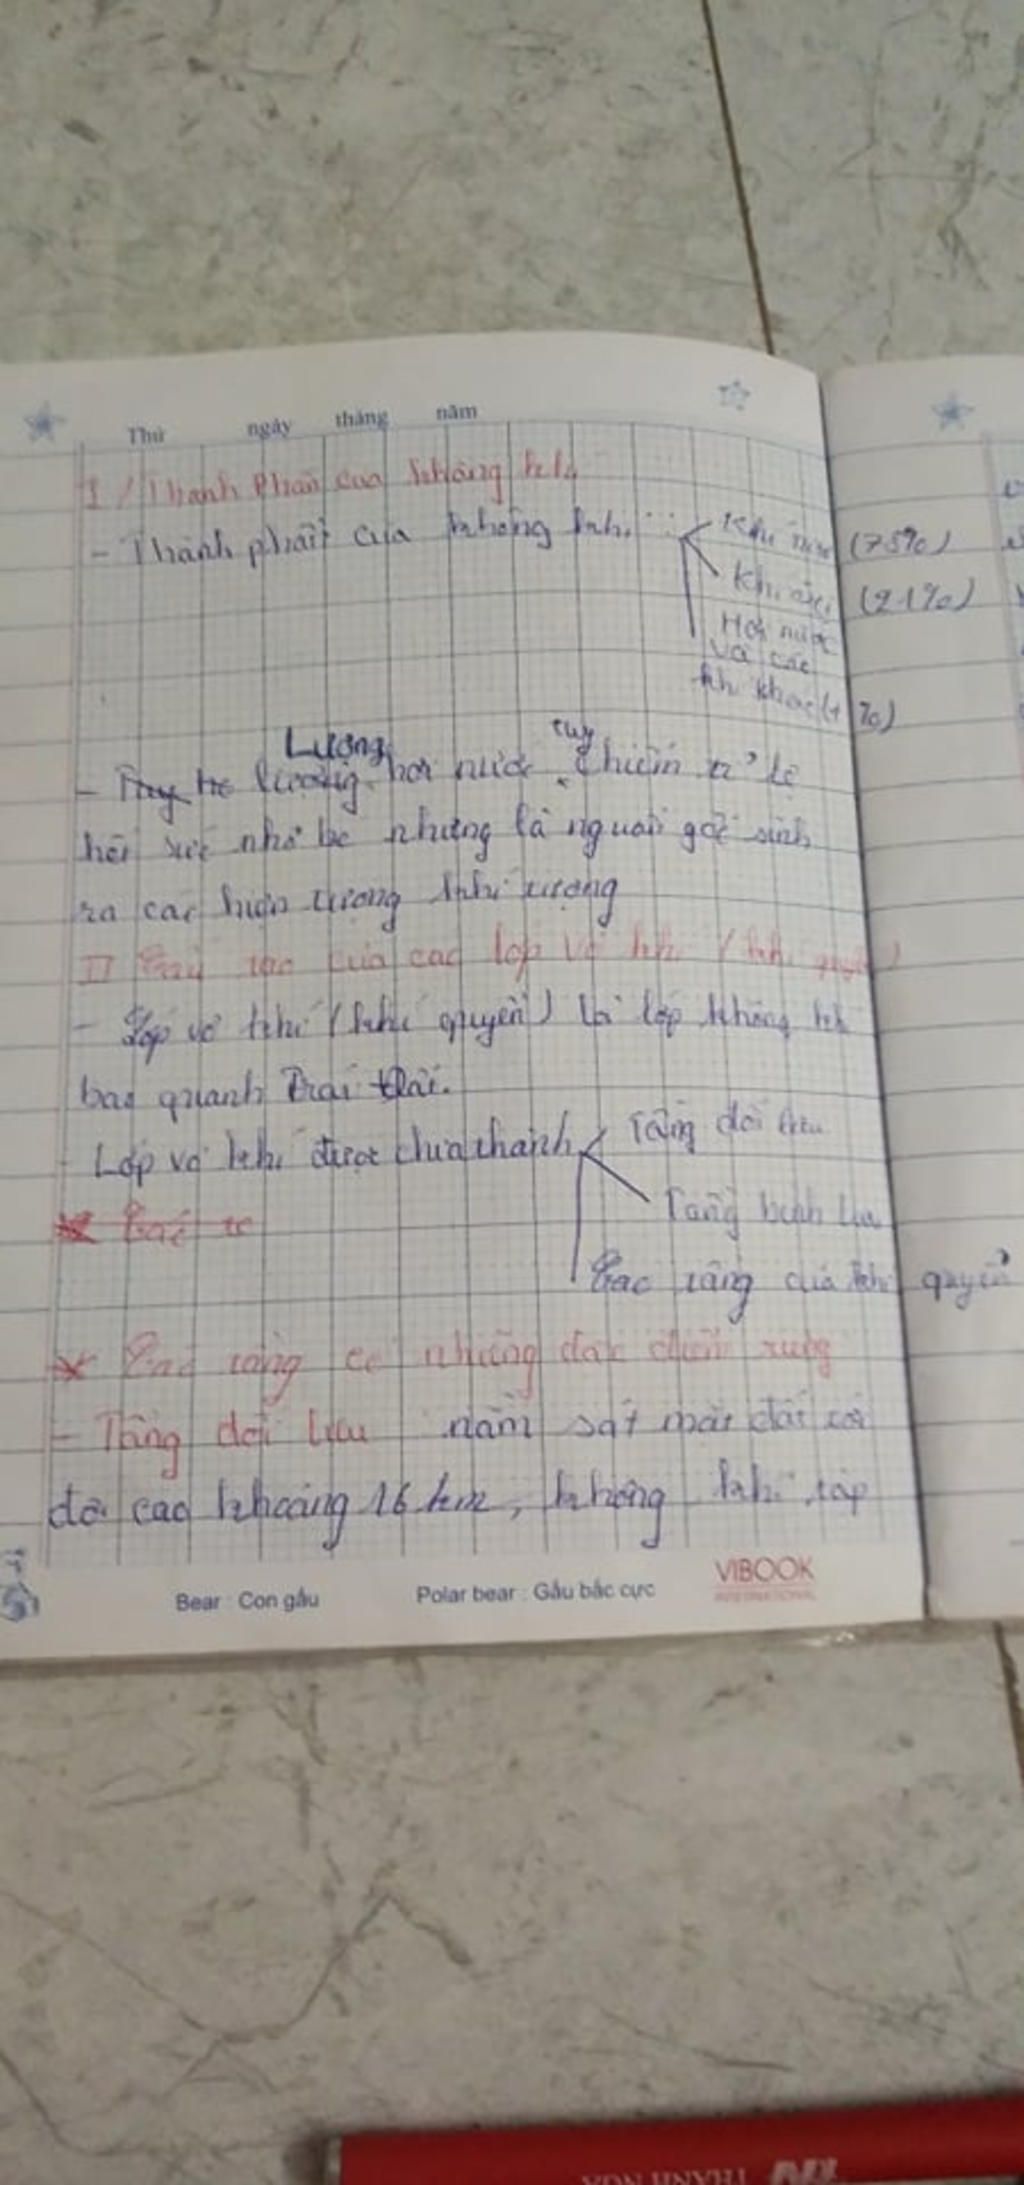 Thứ ngày tháng năm
I / Thành Phần của không khí
- Thành phần của không khí : Khí nitơ (78%)
Khí oxi (21%)
Hơi nước
và các
khí khác (1%)
Lượng tuy
- hơi nước chiếm tỉ lệ
hết sức nhỏ bé nhưng là nguồn gốc sinh
ra các hiện tượng khí tượng
II Cấu tạo của các lớp vỏ khí (khí quyển)
- Lớp vỏ khí (khí quyển) là lớp không khí
bao quanh Trái Đất.
- Lớp vỏ khí được chia thành Tầng đối lưu
Tầng bình lưu
Các tầng của khí quyển
* Các tầng có những đặc điểm riêng
- Tầng đối lưu nằm sát mặt đất có
độ cao khoảng 16 km, không khí tập
Bear : Con gấu Polar bear : Gấu bắc cực VIBOOK
INTERNATIONAL